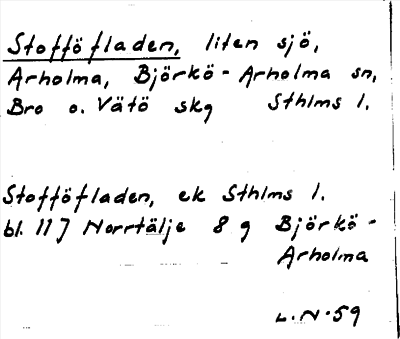 Stofföfladen, liten sjö,
Arholma, Björkö-Arholma sn,
Bro o. Vätö skg Sthlms l.
Stofföfladen, ek Sthlms l.
bl. 117 Norrtälje 8 g Björkö-
Arholma
L.N-59